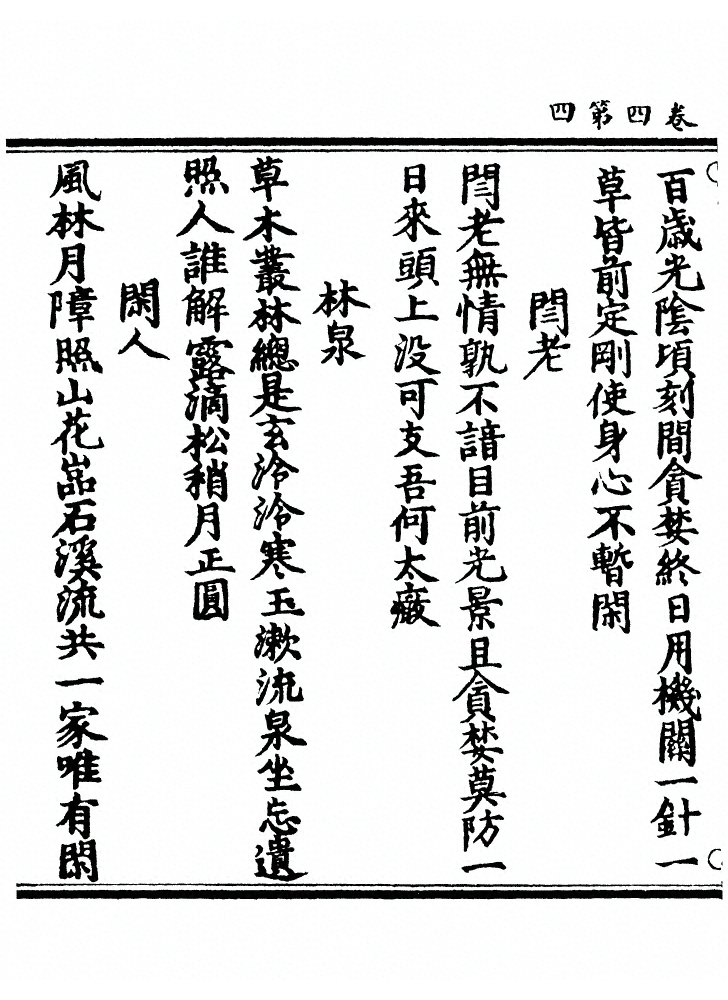 卷四第四
百歳光陰頃刻間貪婪終日用機關一針一
草皆前定剛使身心不暫閑
閻老
閻老無情孰不諳目前光景且貪婪莫防一
日來頭上没可支吾何太癡
林泉
草木叢林總是玄泠泠寒玉漱流泉坐忘遺
照人誰解露滴松稍月正圓
閑人
風林月障照山花嵓石溪流共一家唯有閑